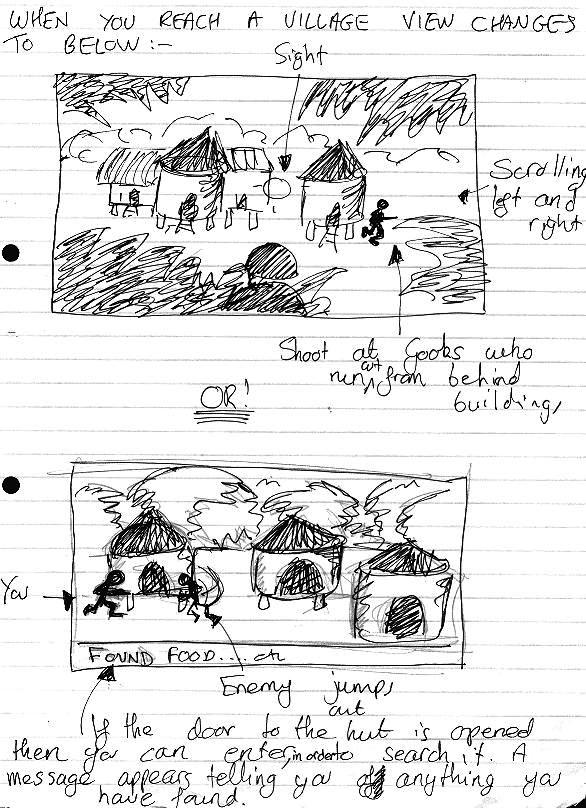 WHEN YOU REACH A VILLAGE VIEW CHANGES
TO BELOW :-
Sight
Scrolling
left and
right
Shoot at Gooks who
run out from behind
buildings
OR!
You
FOUND FOOD.... etc
Enemy jumps
out
If the door to the hut is opened
then you can enter, in order to search it. A
message appears telling you of anything you
have found.